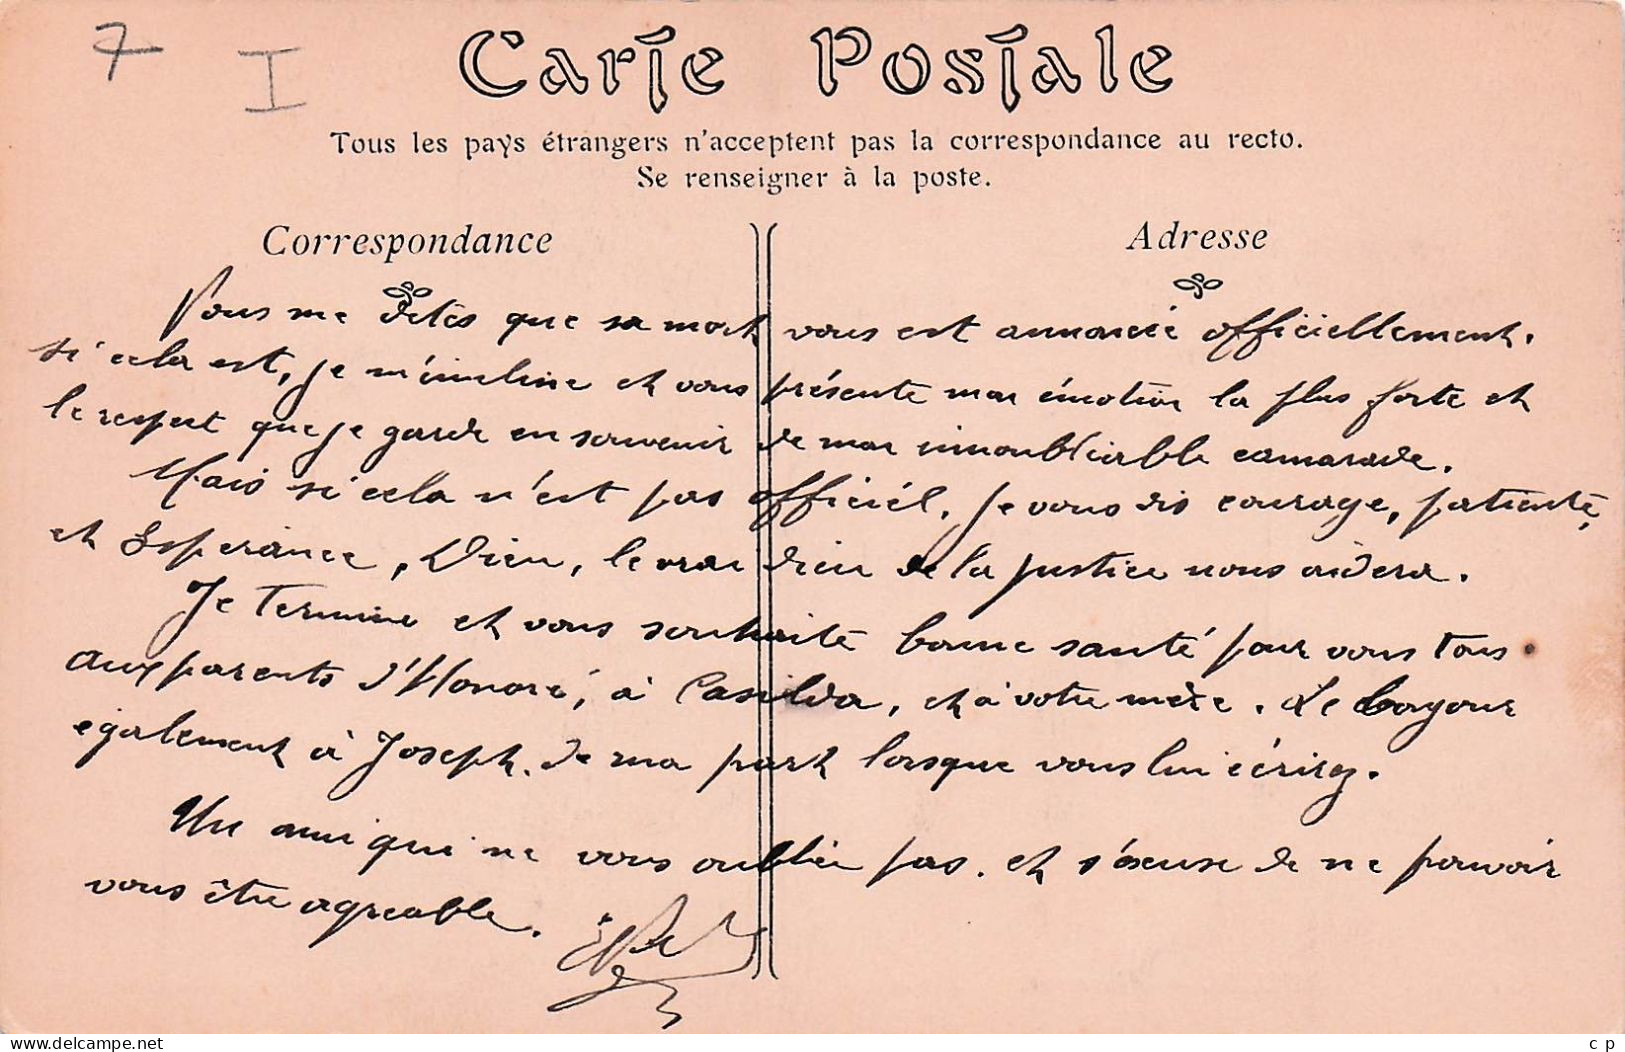 7 I
Carte Postale
Tous les pays étrangers n'acceptent pas la correspondance au recto.
Se renseigner à la poste.
Correspondance
Adresse
Vous me dites que sa mort vous est annoncée officiellement.
si cela est, je m'incline et vous présente mon émotion la plus forte et
le respect que je garde en souvenir de mon innoubliable camarade.
Mais si cela n'est pas officiel, je vous dis courage, patiente,
et Esperance, Dieu, le vrai dieu de la justice nous aidera.
Je termine et vous souhaite bonne santé pour vous tous.
aux parents d'Honoré, à Casilda, et à votre mère. Le bonjour
également à Joseph. de ma part lorsque vous lui écrirez.
Un ami qui ne vous oublie pas. et s'éxcuse de ne pouvoir
vous être agreable.
delcampe.net
c p